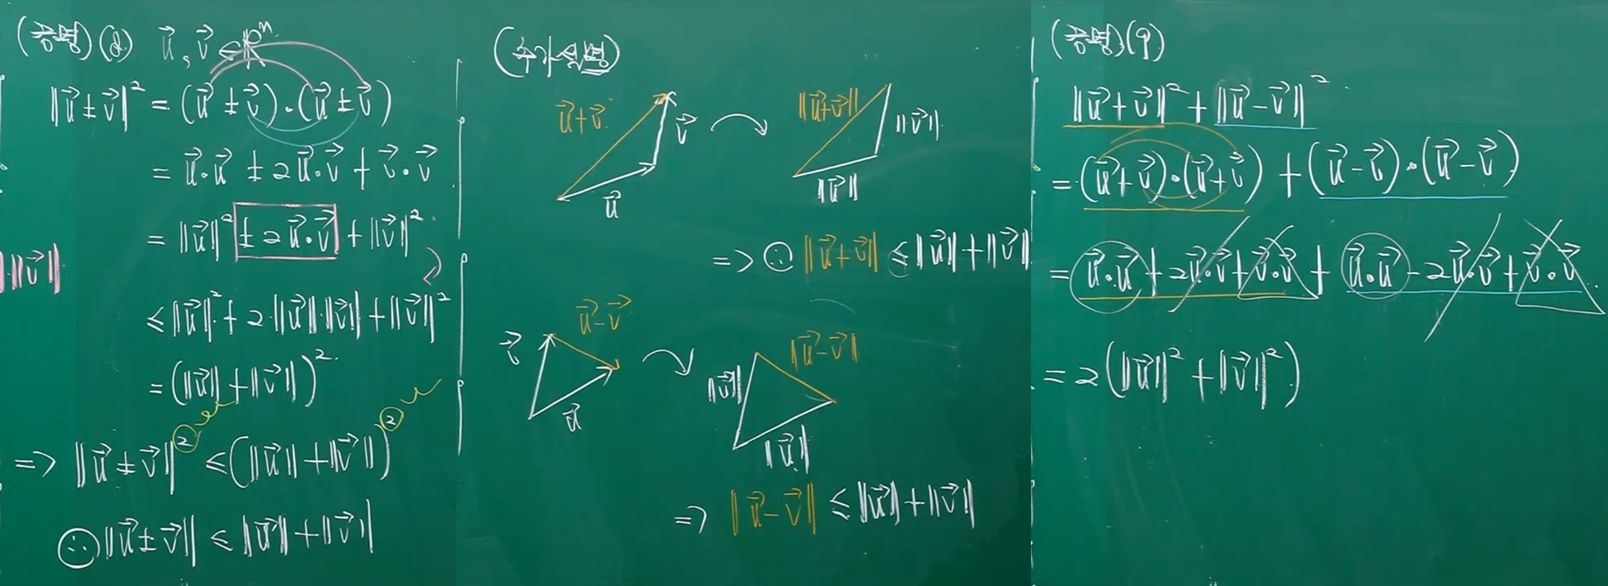 (증명)(8) u⃗, v⃗ ∈ ℝⁿ
‖u⃗ ± v⃗‖² = (u⃗ ± v⃗)·(u⃗ ± v⃗)
= u⃗·u⃗ ± 2u⃗·v⃗ + v⃗·v⃗
= ‖u⃗‖² ± 2u⃗·v⃗ + ‖v⃗‖²
‖v⃗‖
≤ ‖u⃗‖² + 2·‖u⃗‖·‖v⃗‖ + ‖v⃗‖²
= (‖u⃗‖ + ‖v⃗‖)²
=> ‖u⃗ ± v⃗‖² ≤ (‖u⃗‖ + ‖v⃗‖)²
∴ ‖u⃗ ± v⃗‖ ≤ ‖u⃗‖ + ‖v⃗‖
(추가설명)
u⃗+v⃗
v⃗
u⃗
‖u⃗+v⃗‖
‖v⃗‖
‖u⃗‖
=> ∴ ‖u⃗+v⃗‖ ≤ ‖u⃗‖ + ‖v⃗‖
v⃗
u⃗-v⃗
u⃗
‖v⃗‖
‖u⃗-v⃗‖
‖u⃗‖
=> ‖u⃗-v⃗‖ ≤ ‖u⃗‖ + ‖v⃗‖
(증명)(9)
‖u⃗+v⃗‖² + ‖u⃗-v⃗‖²
= (u⃗+v⃗)·(u⃗+v⃗) + (u⃗-v⃗)·(u⃗-v⃗)
= u⃗·u⃗ + 2u⃗·v⃗ + v⃗·v⃗ + u⃗·u⃗ - 2u⃗·v⃗ + v⃗·v⃗
= 2(‖u⃗‖² + ‖v⃗‖²)